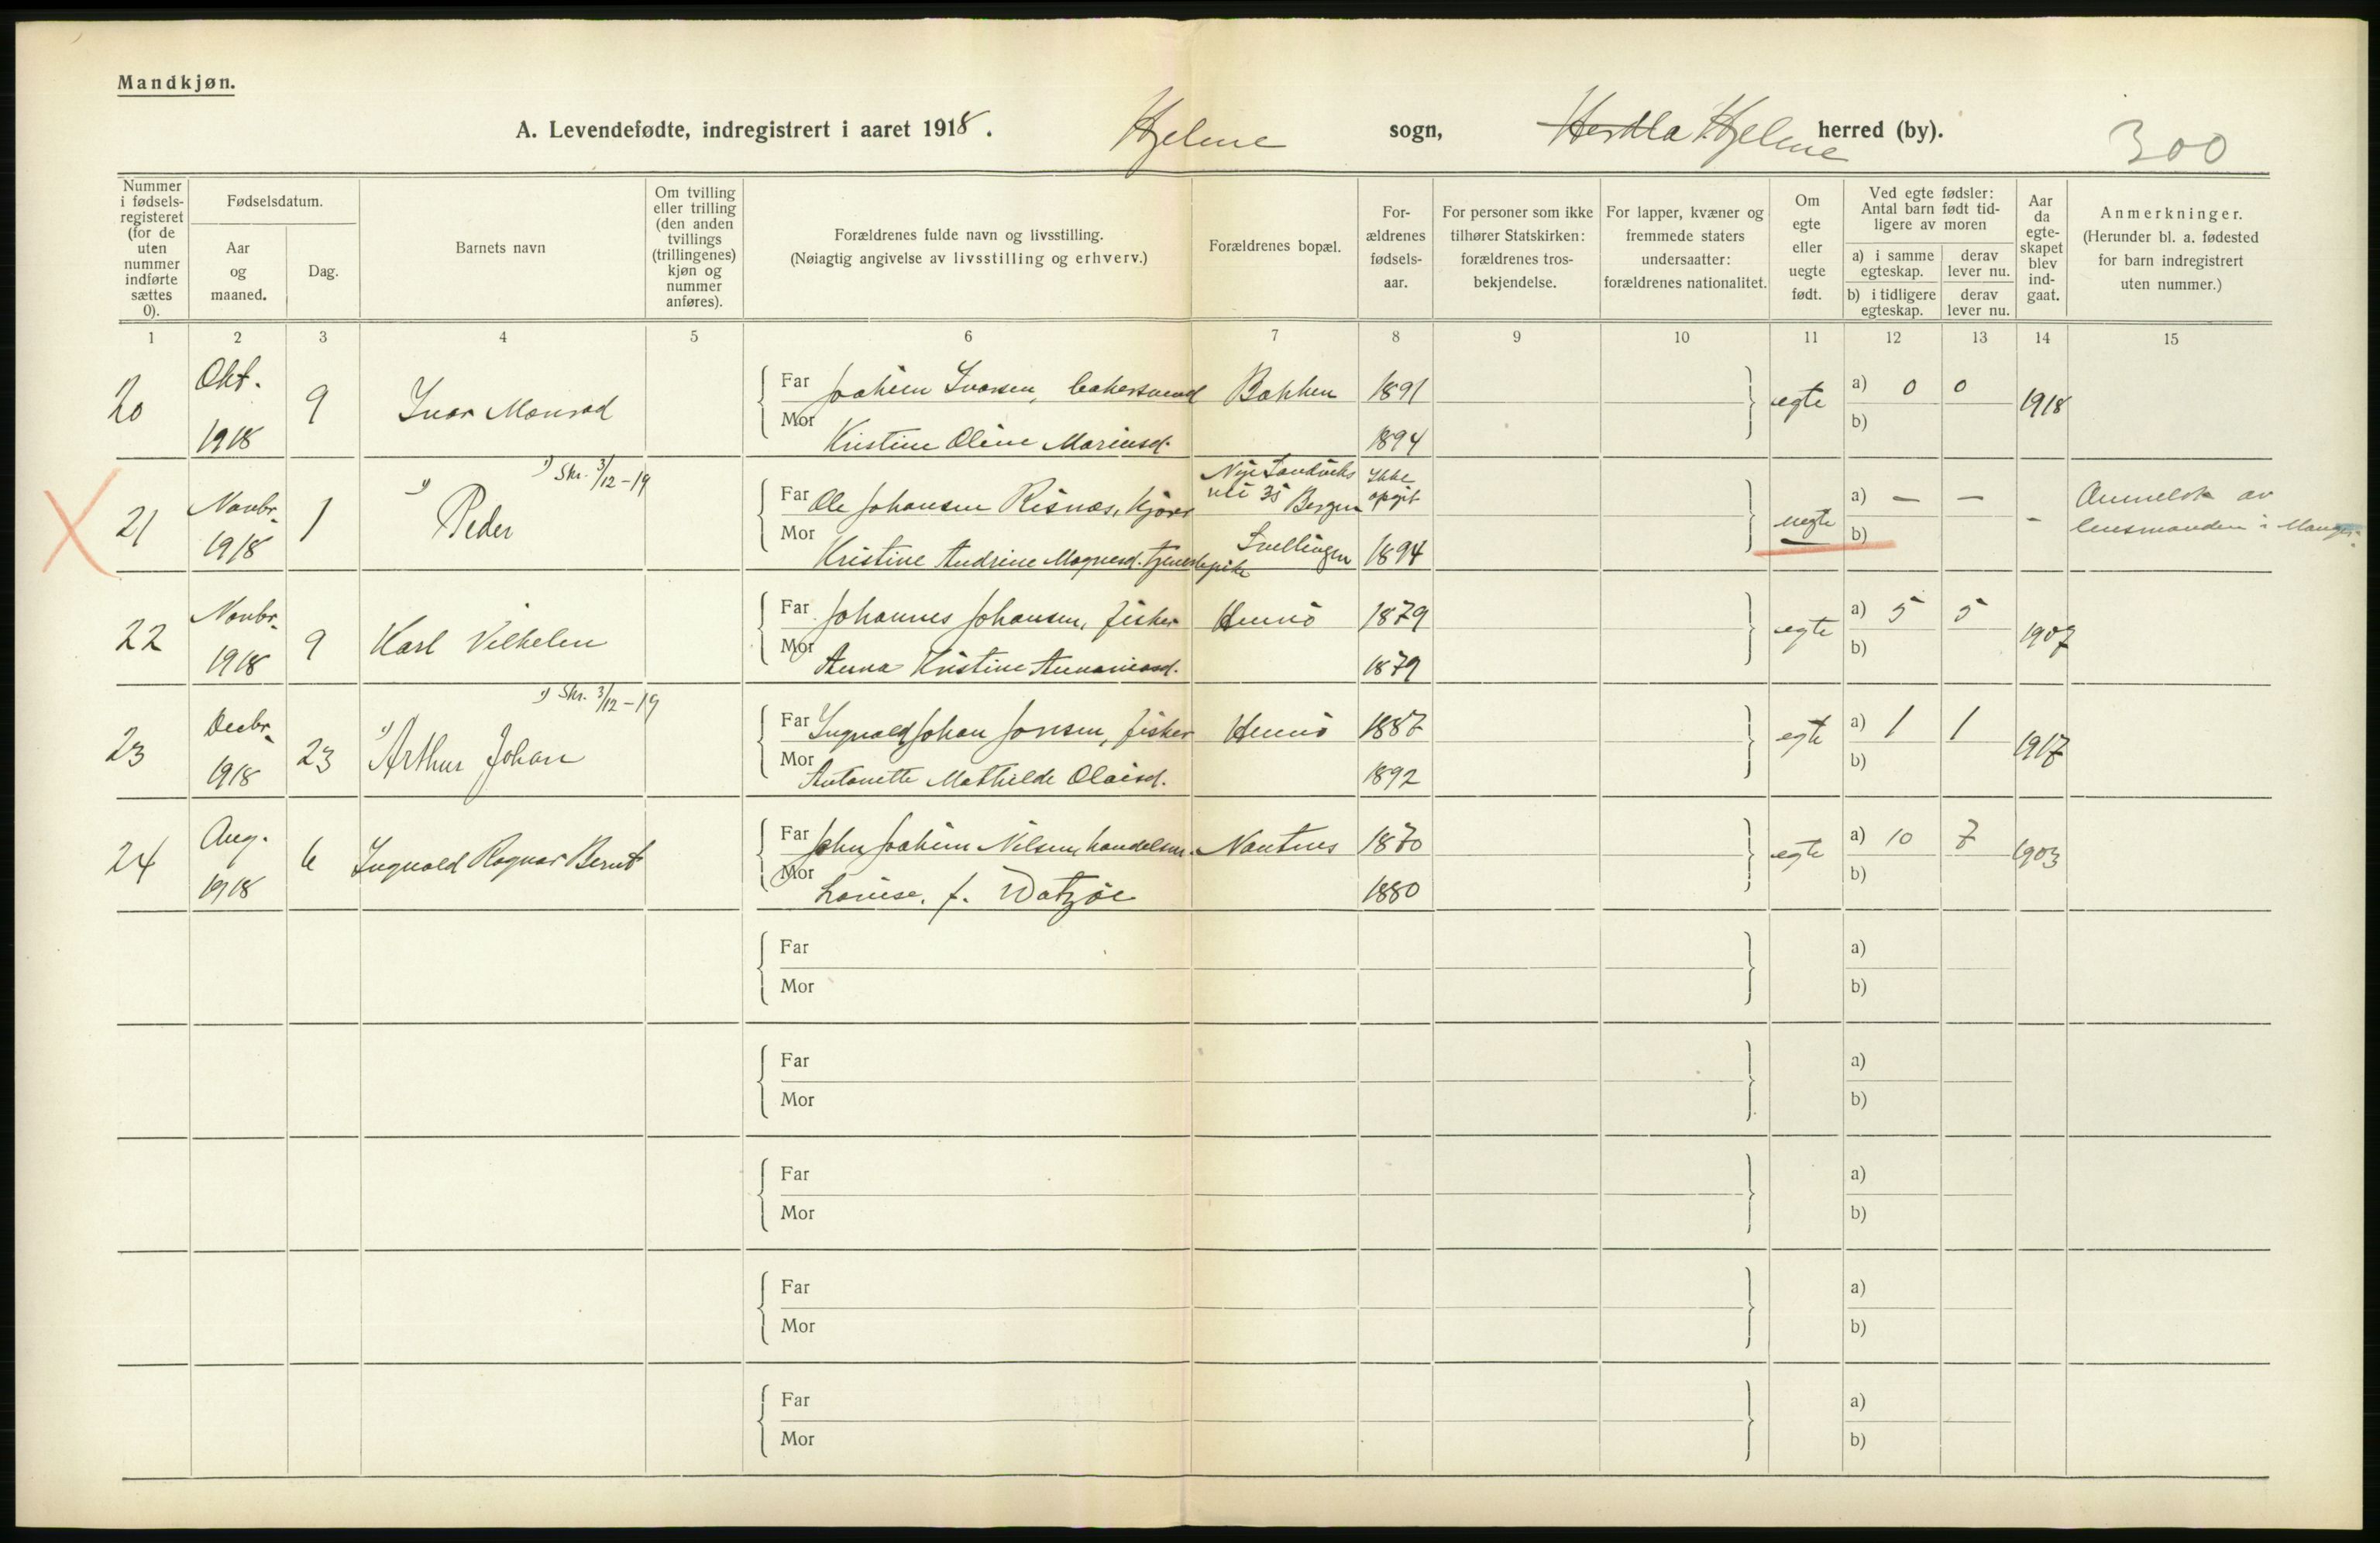 Mandkjøn.
A. Levendefødte, indregistrert i aaret 1918. Hjelme sogn, Herdla Hjelme herred (by). 300
Nummer i fødselsregisteret (for de uten nummer indførte sættes 0).
Fødselsdatum.
Aar og maaned.
Dag.
Barnets navn
Om tvilling eller trilling (den anden tvillings (trillingenes) kjøn og nummer anføres).
Forældrenes fulde navn og livsstilling.
(Nøiagtig angivelse av livsstilling og erhverv.)
Forældrenes bopæl.
Forældrenes fødselsaar.
For personer som ikke tilhører Statskirken: forældrenes trosbekjendelse.
For lapper, kvæner og fremmede staters undersaatter: forældrenes nationalitet.
Om egte eller uegte født.
Ved egte fødsler: Antal barn født tidligere av moren
a) i samme egteskap. derav lever nu.
b) i tidligere egteskap. derav lever nu.
Aar da egteskapet blev indgaat.
Anmerkninger.
(Herunder bl. a. fødested for barn indregistrert uten nummer.)
1 2 3 4 5 6 7 8 9 10 11 12 13 14 15
20 Okt. 1918 9 Ivar Monrad
Far Joakim Ivarsen, bakersvend Bakken 1891 egte a) 0 0 1918
Mor Kristine Oline Mariusd. 1894 b)
1) Skr. 3/12-19
21 Novbr. 1918 1 1) Peder
Far Ole Johansen Risnæs, Nye Sandviks vei 35 Bergen Ikke opgit uegte a) — — - Anmeldt av lensmanden i Manger.
Mor Kristine Andrine Magnusd. tjenestepike 1894 b)
22 Novbr. 1918 9 Karl Vilhelm
Far Johannes Johansen, fisker Hennø 1879 egte a) 5 5 1907
Mor Anna Kristine Annaniasd. 1879 b)
1) Skr. 3/12-19
23 Decbr. 1918 23 1) Arthur Johan
Far Ingvald Johan Jonsen, fisker Hennø 1887 egte a) 1 1 1917
Mor Antonette Mathilde Olaisd. 1892 b)
24 Aug. 1918 6 Ingvald Ragnar Bernt
Far John Joakim Nilsen, handelsm. Nautnes 1870 egte a) 10 7 1903
Mor Lovise, f. Watzøe 1880 b)
Far a)
Mor b)
Far a)
Mor b)
Far a)
Mor b)
Far a)
Mor b)
Far a)
Mor b)